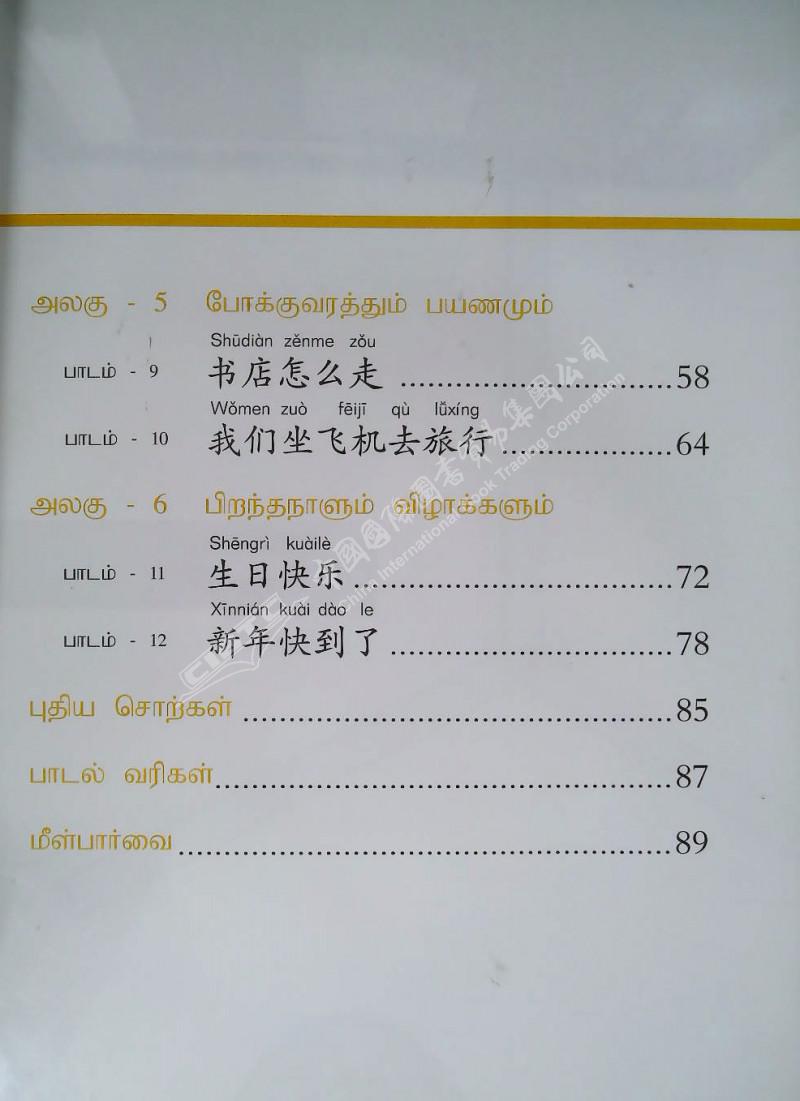 அலகு - 5 போக்குவரத்தும் பயணமும்
Shūdiàn zěnme zǒu
பாடம் - 9 书店怎么走 ........................58
Wǒmen zuò fēijī qù lǚxíng
பாடம் - 10 我们坐飞机去旅行 ...............64
அலகு - 6 பிறந்தநாளும் விழாக்களும்
Shēngrì kuàilè
பாடம் - 11 生日快乐 ............................72
Xīnnián kuài dào le
பாடம் - 12 新年快到了 ........................78
புதிய சொற்கள் ......................................85
பாடல் வரிகள் ........................................87
மீள்பார்வை ............................................89
中國國際圖書貿易集團公司
China International Book Trading Corporation